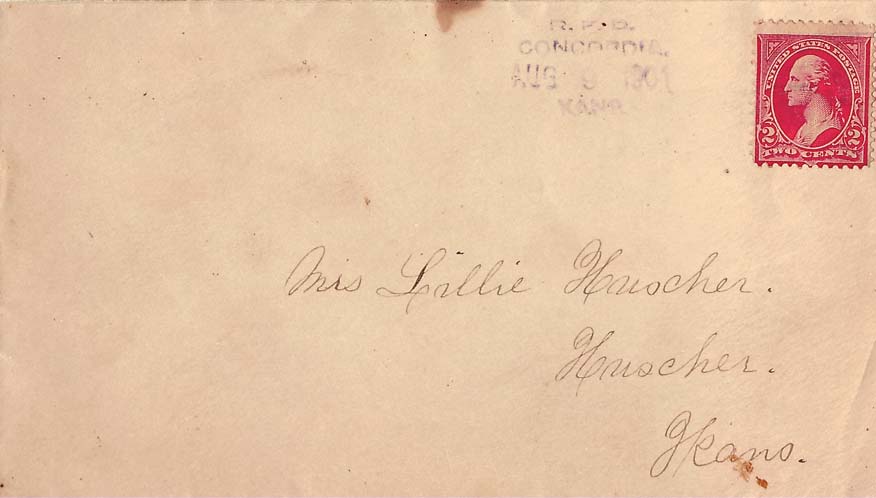 R. F. D.
CONCORDIA.
AUG 9 1901
KANS.
UNITED STATES POSTAGE
2 2
TWO CENTS
Mis Lillie Huscher.
Huscher.
Kans.